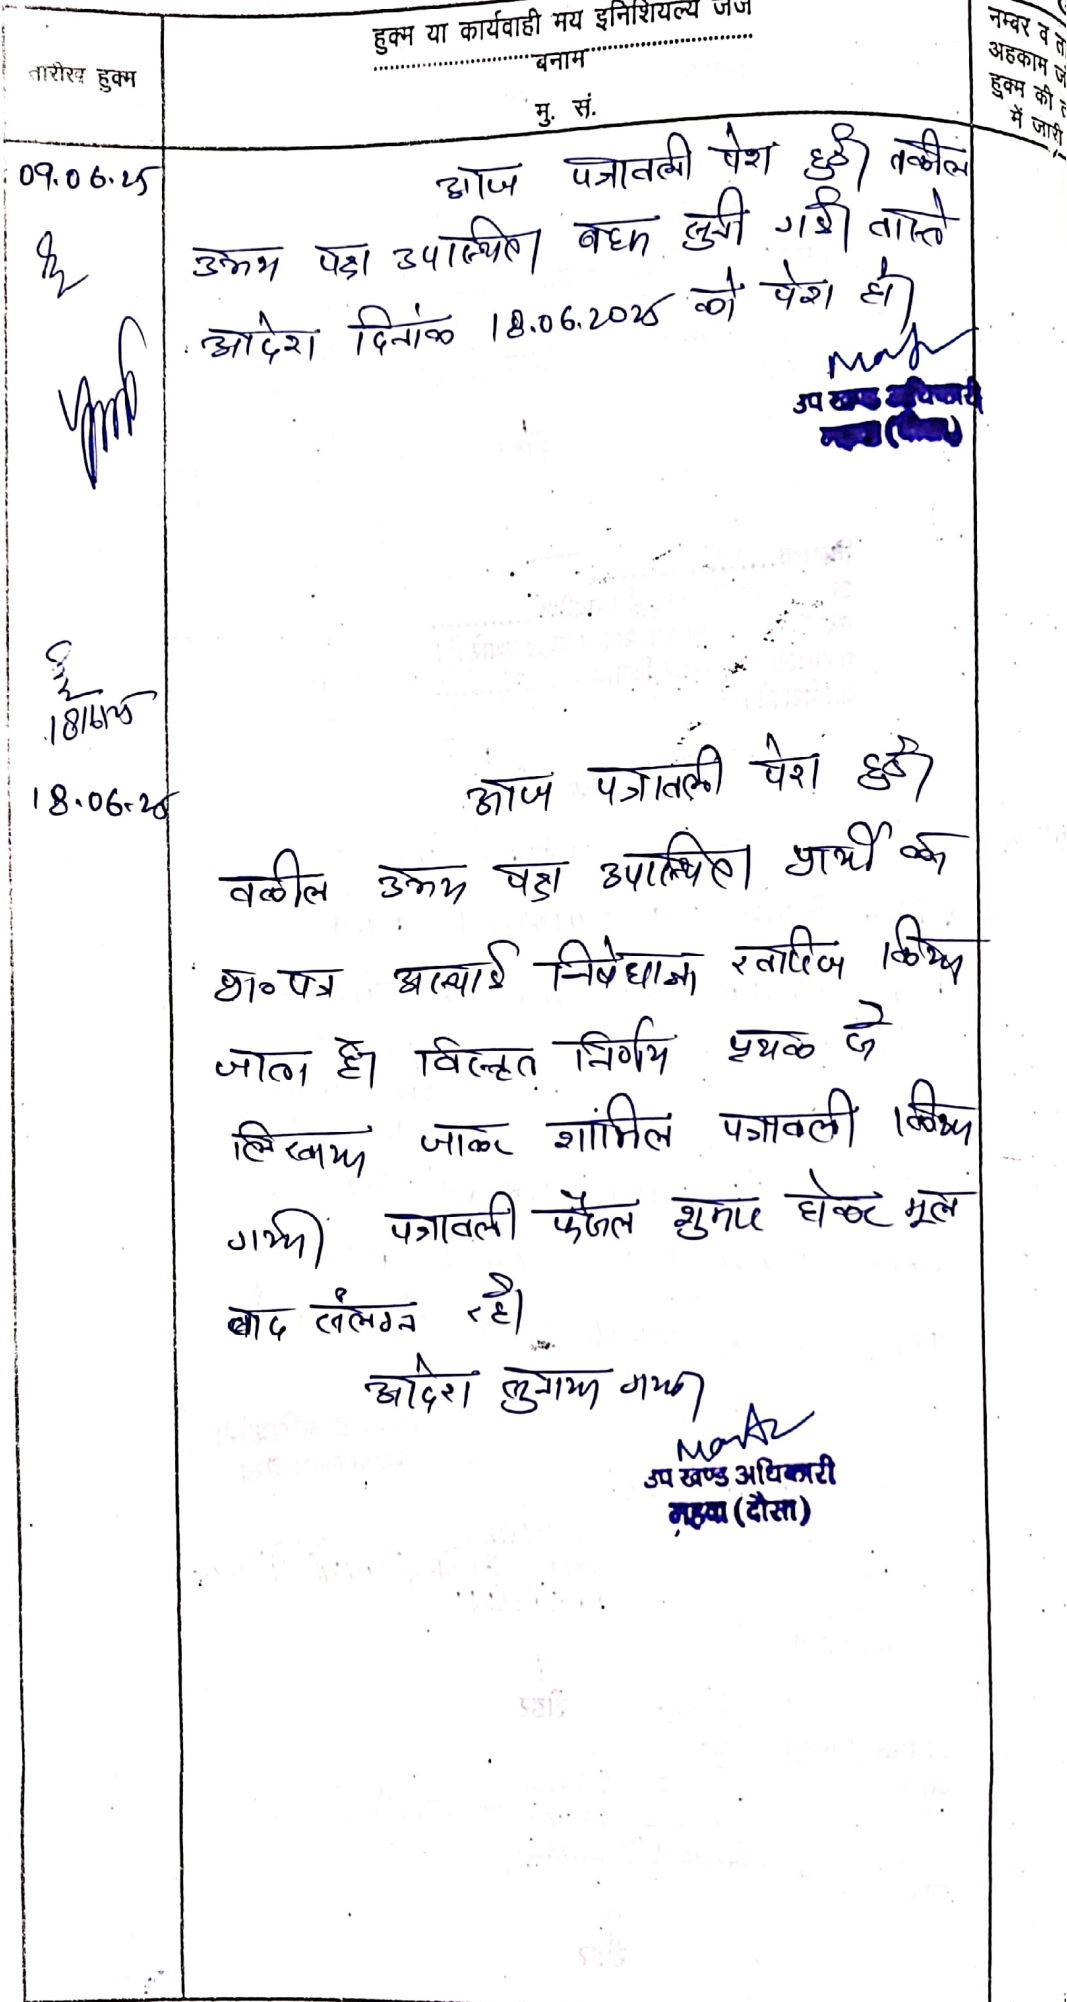 हुक्म या कार्यवाही मय इनिशियल्य जज
बनाम
मु. सं.
तारीख हुक्म
नम्बर व
अहकाम
हुक्म की
में जारी
09.06.25
आज पत्रावली पेश हुई। वकील
उभय पक्ष उपस्थित। बहस सुनी गई। वास्ते
आदेश दिनांक 18.06.2025 को पेश हो।
उप खण्ड अधिकारी
18/6/25
18.06.25
आज पत्रावली पेश हुई।
वकील उभय पक्ष उपस्थित। प्रार्थी का
प्रा० पत्र अस्थाई निषेधाज्ञा खारिज किया
जाता है। विस्तृत निर्णय पृथक से
लिखाया जाकर शामिल पत्रावली किया
गया। पत्रावली फैसल शुमार होकर मूल
वाद संलग्न रहे।
आदेश सुनाया गया।
उप खण्ड अधिकारी
महवा (दौसा)